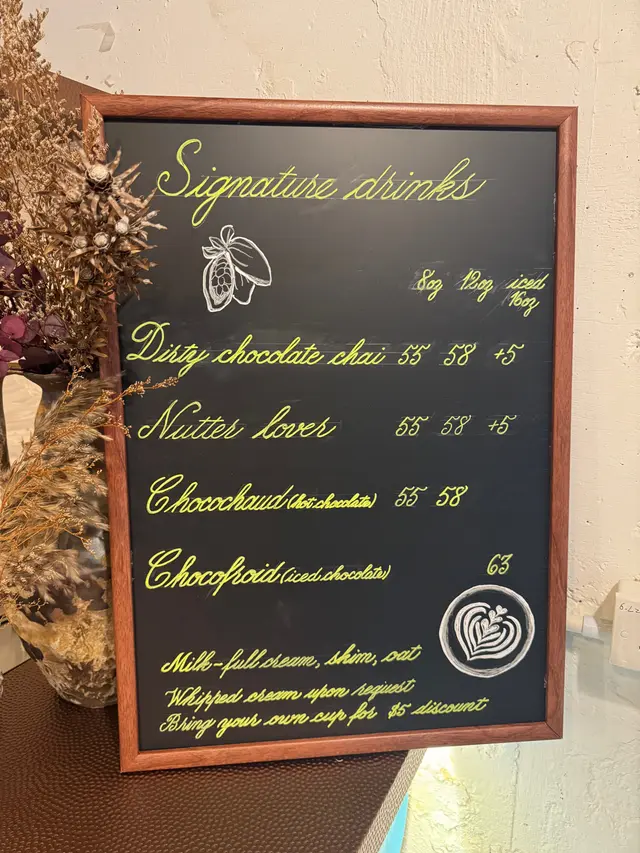 Signature drinks
8oz 12oz iced 16oz
Dirty chocolate chai 55 58 +5
Nutter lover 55 58 +5
Chocochaud (hot chocolate) 55 58
Chocofroid (iced chocolate) 63
Milk-full cream, skim, oat
Whipped cream upon request
Bring your own cup for $5 discount